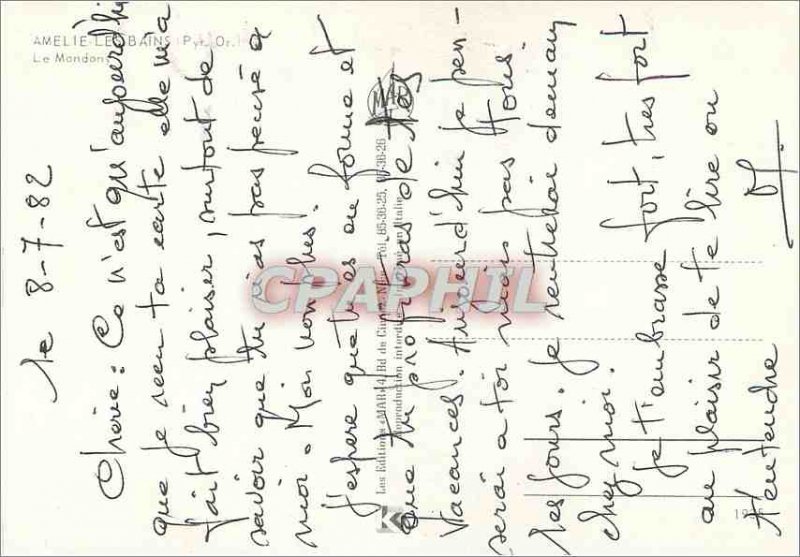 AMELIE-LES-BAINS (Pyr. Or.)
Le Mondony
le 8-7-82
Chérie. Ce n'est qu'aujourd'hui
que je reçu ta carte elle m'a
fait bien plaisir, surtout de
savoir que tu m'as pas pensé a
moi. Mon
J'espere que tu es en forme et
que tu profiteras de tes
vacances. Aujourd'hui je pen-
serai a toi mais pas tous
les jours. Je rentrerai demain
chez moi.
Je t'embrasse fort, tres fort
au plaisir de te lire ou
t'entendre
Les Editions «MAR», 4, Bd de Cimiez - Nice - Tél. 85-36-25, 85-36-26
Reproduction interdite en Italie
MAR
K
CPAPHIL